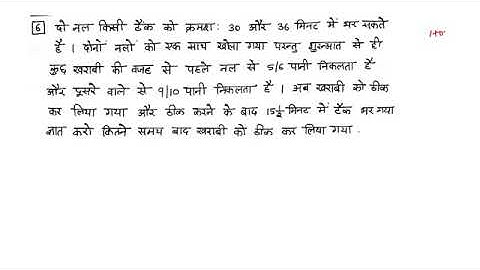 6 दो नल किसी टैंक को क्रमशः 30 और 36 मिनट में भर सकते
है । दोनों नलों को एक साथ खोला गया परन्तु शुरूआत से ही
कुछ खराबी की वजह से पहले नल से 5/6 पानी निकलता है
और दूसरे वाले से 9/10 पानी निकलता है । अब खराबी को ठीक
कर लिया गया और ठीक करने के बाद 15½ मिनट में टैंक भर गया
ज्ञात करो कितने समय बाद खराबी को ठीक कर लिया गया .